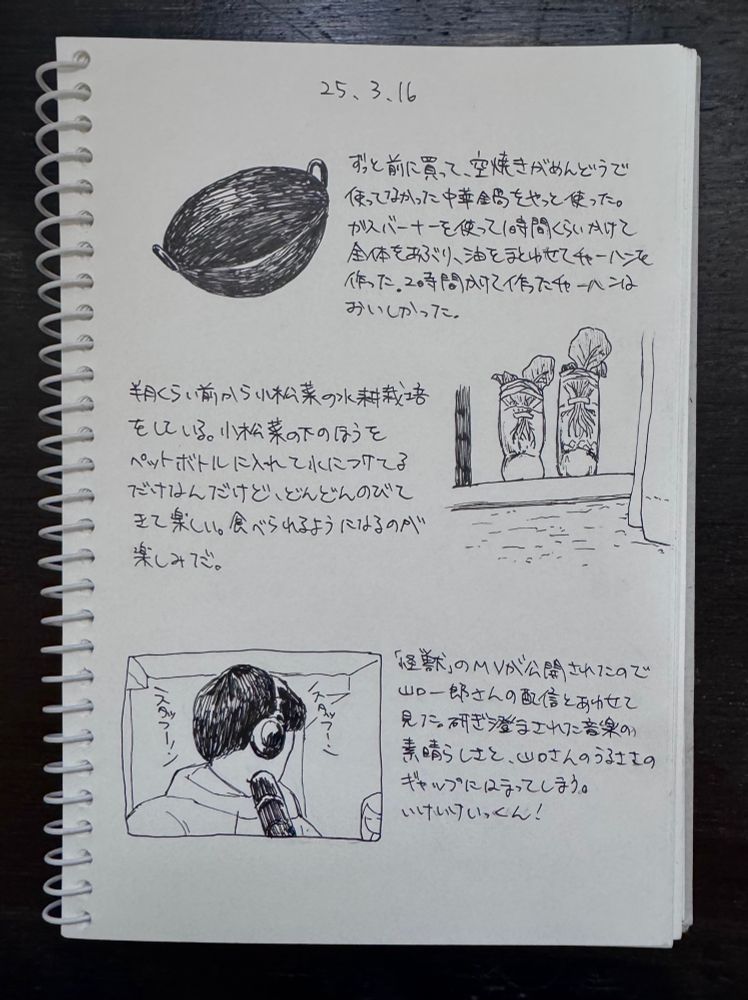 25、3、16
ずっと前に買って、空焼きがめんどうで
使ってなかった中華鍋をやっと使った。
ガスバーナーを使って1時間くらいかけて
全体をあぶり、油をまとわせてチャーハンを
作った。2時間かけて作ったチャーハンは
おいしかった。
半月くらい前から小松菜の水耕栽培
をしている。小松菜の下のほうを
ペットボトルに入れて水につけてる
だけなんだけど、どんどんのびて
きて楽しい。食べられるようになるのが
楽しみだ。
スタッフー！
スタッフー！
「怪獣」のMVが公開されたので
山口一郎さんの配信とあわせて
見た。研ぎ澄まされた音楽の
素晴らしさと、山口さんのうるささの
ギャップにはまってしまう。
いけいけいっくん！